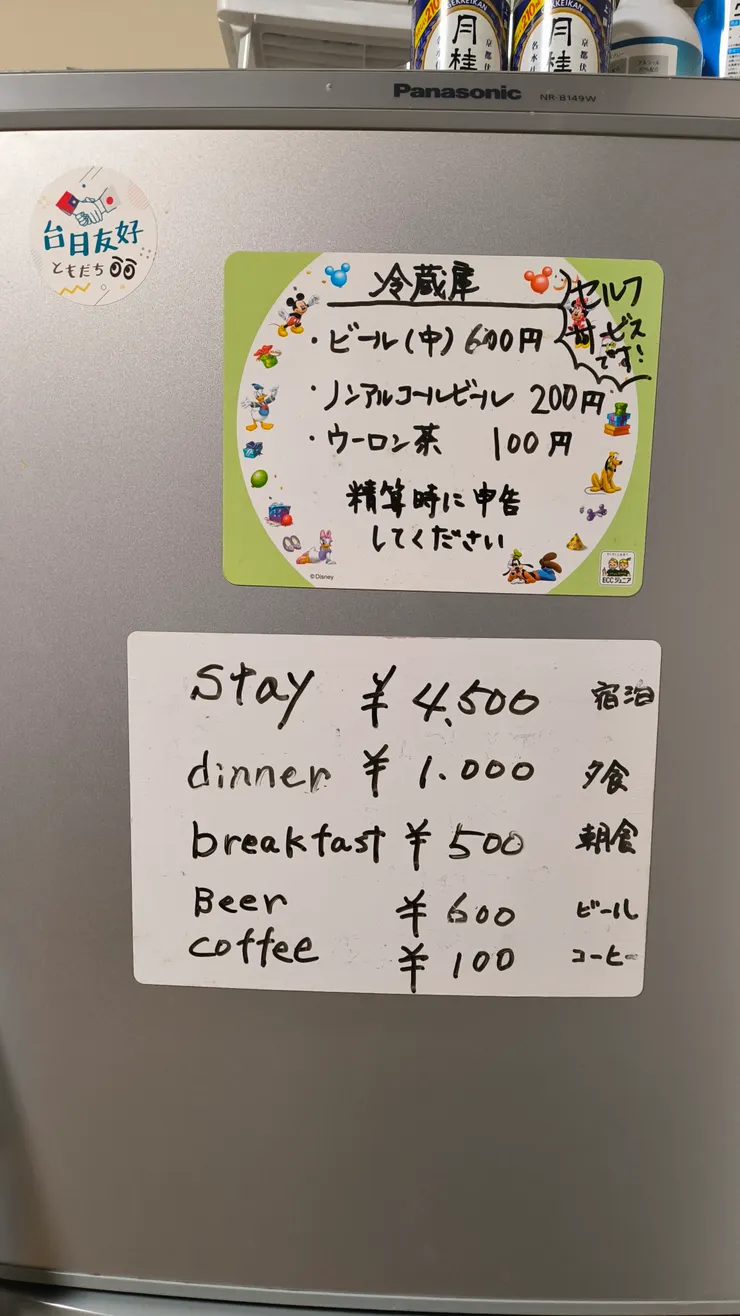 GEKKEIKAN
月桂
京都伏
月桂
京都伏
Panasonic NR-B149W
台日友好
ともだち
冷蔵庫
セルフ
サービス
です!
・ビール(中) 600円
・ノンアルコールビール 200円
・ウーロン茶 100円
精算時に申告
してください
©Disney
ECCジュニア
Stay ¥4,500 宿泊
dinner ¥1.000 夕食
breakfast ¥500 朝食
Beer ¥600 ビール
coffee ¥100 コーヒー